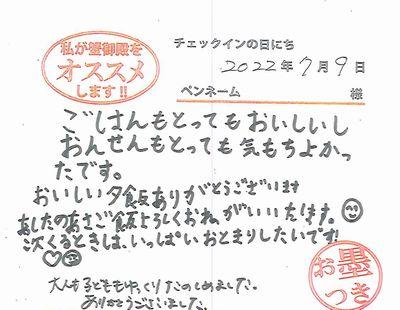 私が蟹御殿を
オススメ
します!!
チェックインの日にち
2022年7月9日
ペンネーム 様
ごはんもとってもおいしいし
おんせんもとっても気もちよかっ
たです。
おいしい夕飯ありがとうございます
あしたのあさご飯よろしくおねがいいたします。
次くるときは、いっぱいおとまりしたいです!
大人も子どももゆっくりたのしめました。
ありがとうございました。
お墨
つき